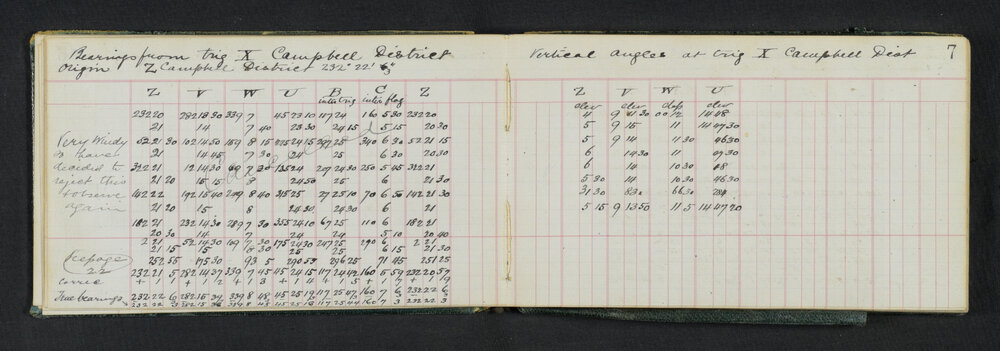 Bearings from trig X Campbell District
Origin Z Campbell District 232° 22' 3"
Z V W U B C Z
inter trig inter flag
232 20 282 13 30 339 7 45 23 10 117 24 160 5 30 232 20
21 14 7 40 23 30 24 15 5 15 20 30
Very Windy 52 21 30 102 14 50 159 8 15 225 24 15 297 25 340 6 30 52 21 15
& have 21 14 45 7 30 24 25 6 30 20 30
decided to 322 21 12 14 30 69 7 30 135 24 209 24 30 250 5 45 322 21
reject this 21 20 15 15 8 24 50 25 6 21 30
& observe 142 22 192 15 40 249 8 40 315 25 27 25 10 70 6 50 142 21 30
again 21 20 15 8 24 30 24 30 6 21
182 21 232 14 30 289 7 30 355 24 10 67 25 110 6 182 21
20 30 14 7 24 24 5 10 20 40
2 21 52 14 30 109 7 30 175 24 30 247 25 290 6 2 21
21 15 15 8 30 25 25 6 15 21 30
See page 22
252 55 175 30 93 5 290 53 296 25 71 45 251 25
232 21 5 282 14 37 339 7 45 45 24 15 117 24 42 160 5 59 232 20 57
corrie + 1 1 + 1 2 + 1 3 + 1 4 + 1 5 + 1 7 + 1 9
True bearings 232 22 6 282 15 39 339 8 48 45 25 19 117 25 47 160 7 6 232 22 6
232 22 3 282 15 36 339 8 45 45 25 16 117 25 44 160 7 3 232 22 3
Vertical angles at trig X Campbell Dist 7
Z V W U
elev elev dep elev
4 9 11 30 00 12 14 48
5 9 15 11 14 47 30
5 9 14 11 30 46 30
6 14 30 11 47 30
6 14 10 30 48
5 30 14 10 30 46 30
31 30 83 0 66 30 284
5 15 9 13 50 11 5 14 47 20